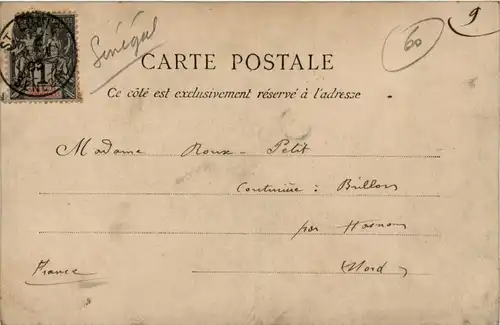 ST
Sénégal
60
9
1
CARTE POSTALE
Ce côté est exclusivement réservé à l'adresse
Madame Roux-Petit
Couturière : Brillon
par Hasnon
Nord
France